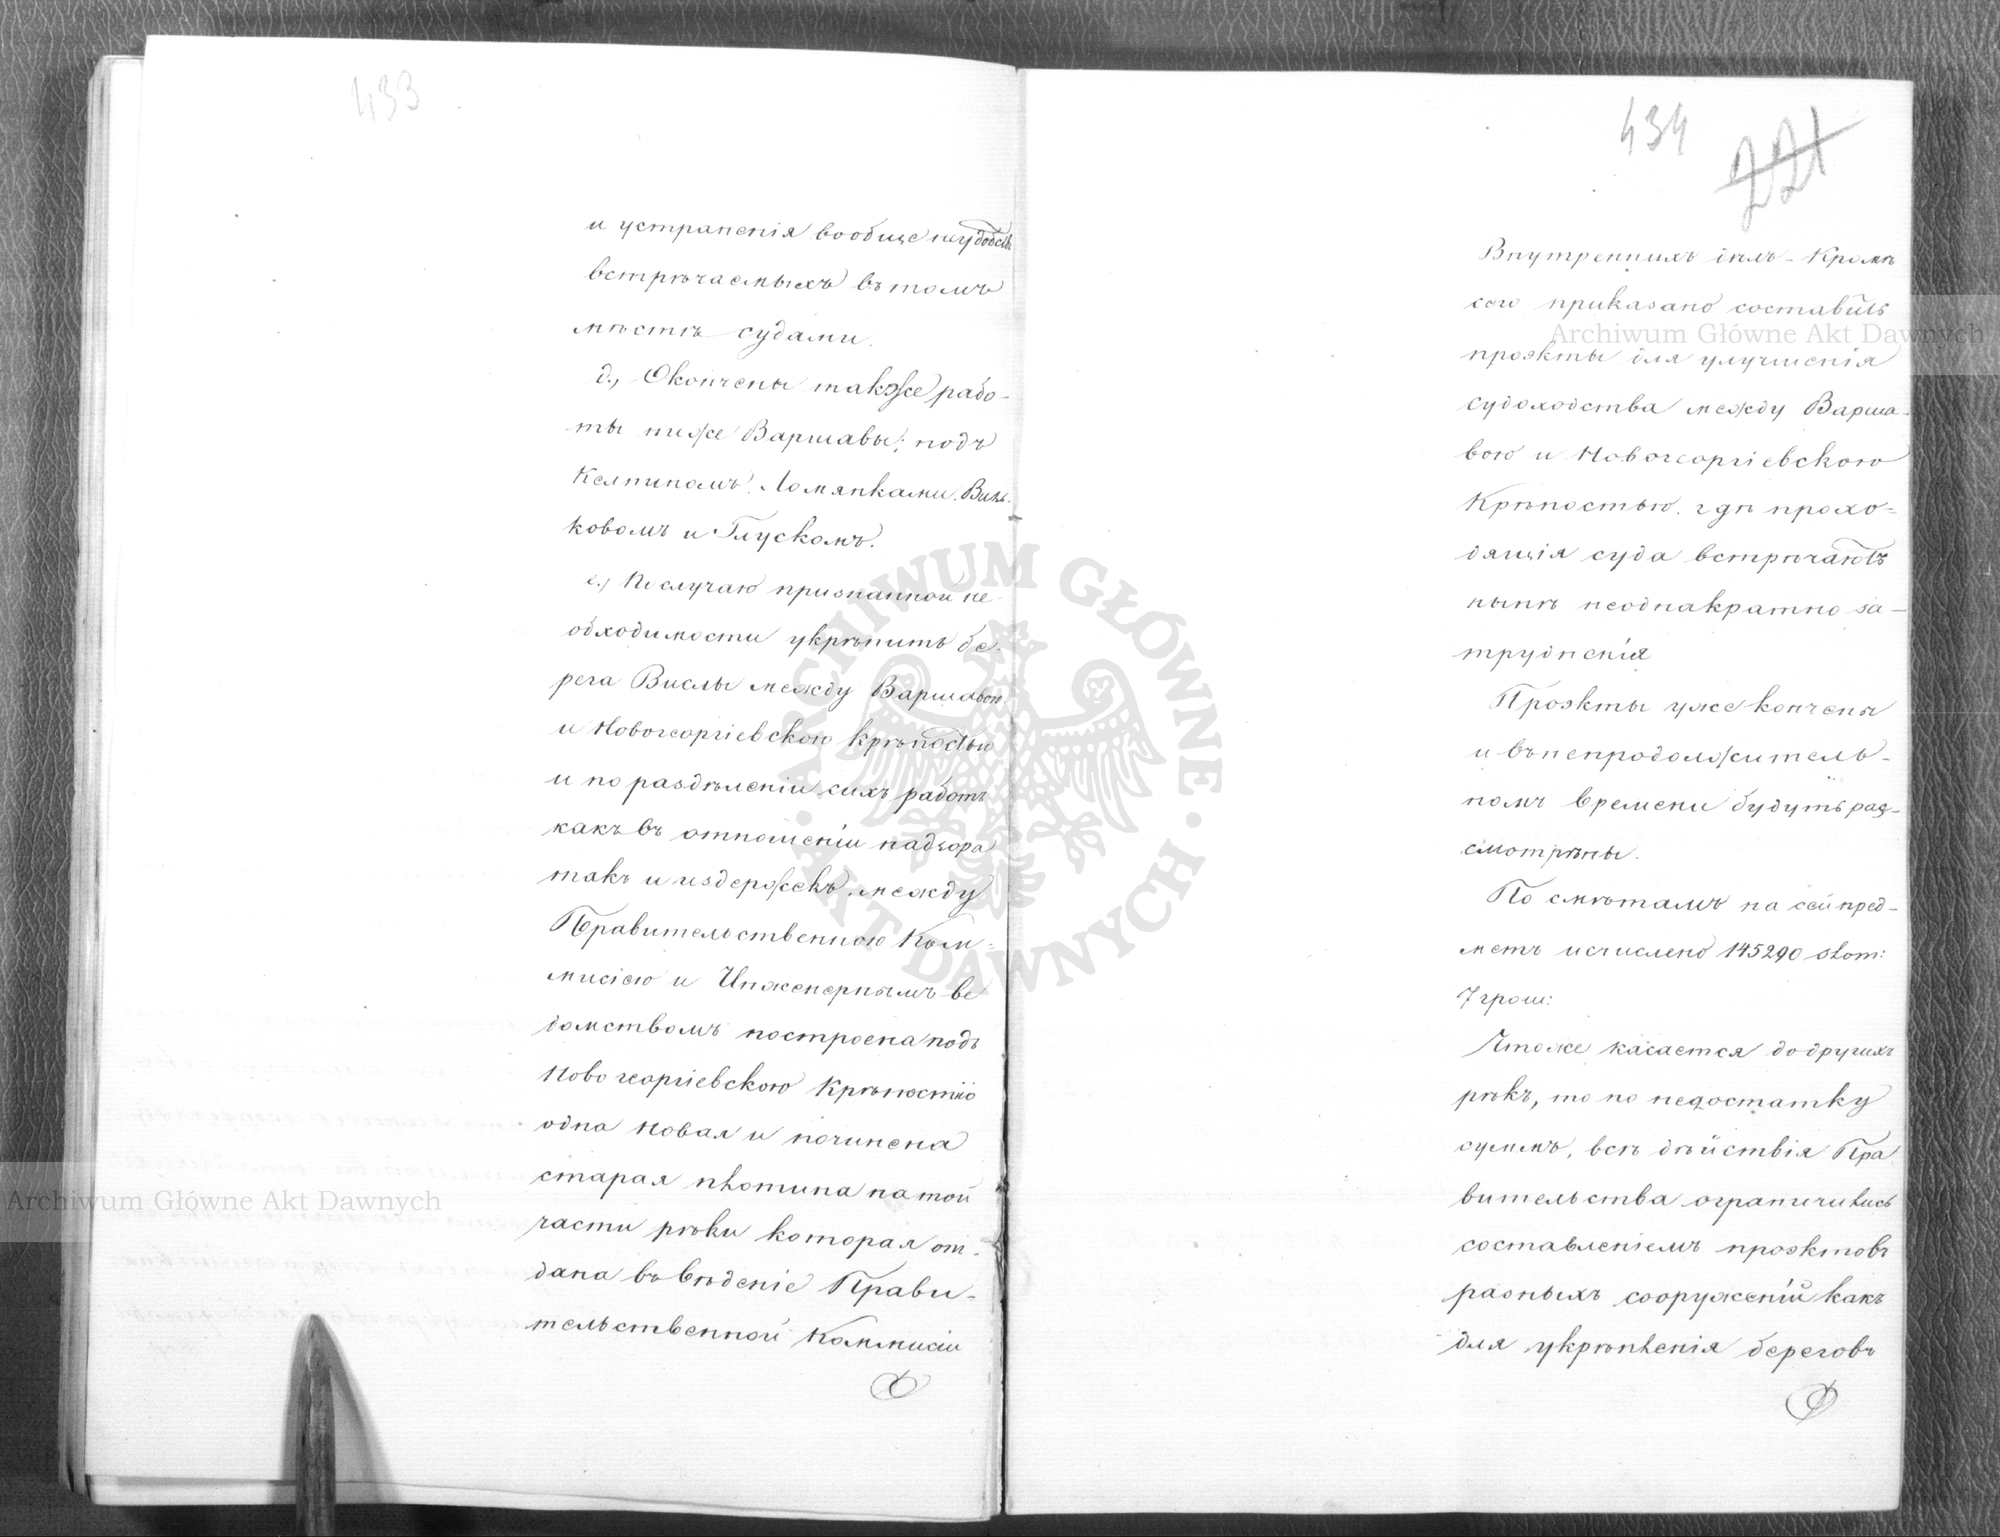 433
и устраненія вообще неудобствъ
встрѣчаемыхъ въ томъ
мѣстѣ судами.
д., Окончены также рабо-
ты ниже Варшавы; подъ
Келпиномъ, Ломянками,
ковомъ и Глускомъ.
е., По случаю признанной не-
обходимости укрѣпить бе-
рега Вислы между Варшавою
и Новогеоргіевскою крѣпостью
и по раздѣленіи сихъ работъ
какъ въ отношеніи надзора
такъ и издержекъ, между
Правительственною Ком-
мисіею и Инженернымъ ве
домствомъ построена подъ
Новогеоргіевскою Крѣпостію
одна новая и починена
старая плотина на той
части рѣки которая от-
дана въ вѣденіе Прави-
тельственной Коммисіи
434
221
Внутреннихъ дѣлъ - Кромѣ
сего приказано составить
проэкты для улучшенія
судоходства между Варша-
вою и Новогеоргіевскою
Крѣпостью, гдѣ прохо-
дящія суда встрѣчаютъ
нынѣ неоднакратно за-
трудненія
Проэкты уже кончены
и въ непродолжитель-
номъ времени будутъ раз-
смотрѣны.
По смѣтамъ на сей пред-
метъ исчислено 145290 злот:
7 грош:
Чтоже касается до другихъ
рѣкъ, то по недостатку
суммъ, всѣ дѣйствія Пра
вительства ограничились
составленіемъ проэктовъ
разныхъ сооруженій какъ
для укрѣпленія береговъ
Archiwum Główne Akt Dawnych
Archiwum Główne Akt Dawnych
ARCHIWUM GŁÓWNE AKT DAWNYCH